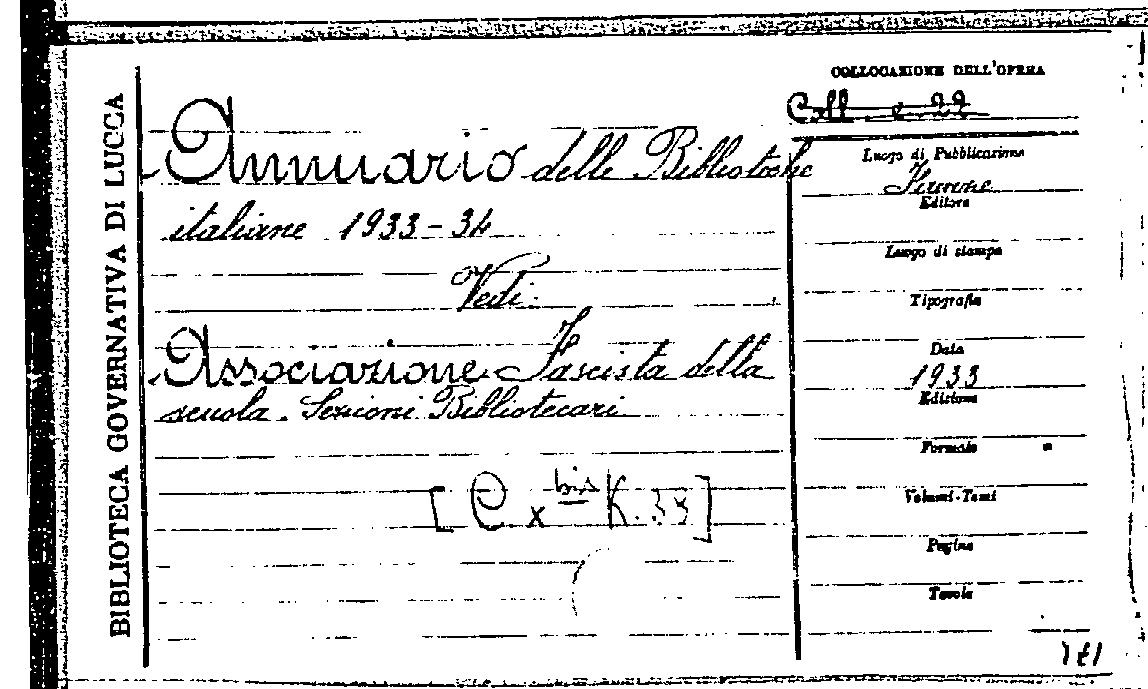 BIBLIOTECA GOVERNATIVA DI LUCCA
Annuario delle Biblioteche
italiane 1933-34
Vedi:
Associazione Fascista della
scuola. Sezioni Bibliotecari
[C. x bis K. 33]
COLLOCAZIONE DELL'OPERA
Coll. c. 22
Luogo di Pubblicazione
Firenze
Editore
Luogo di stampa
Tipografia
Data
1933
Edizione
Formato
Volumi-Tomi
Pagine
Tavole